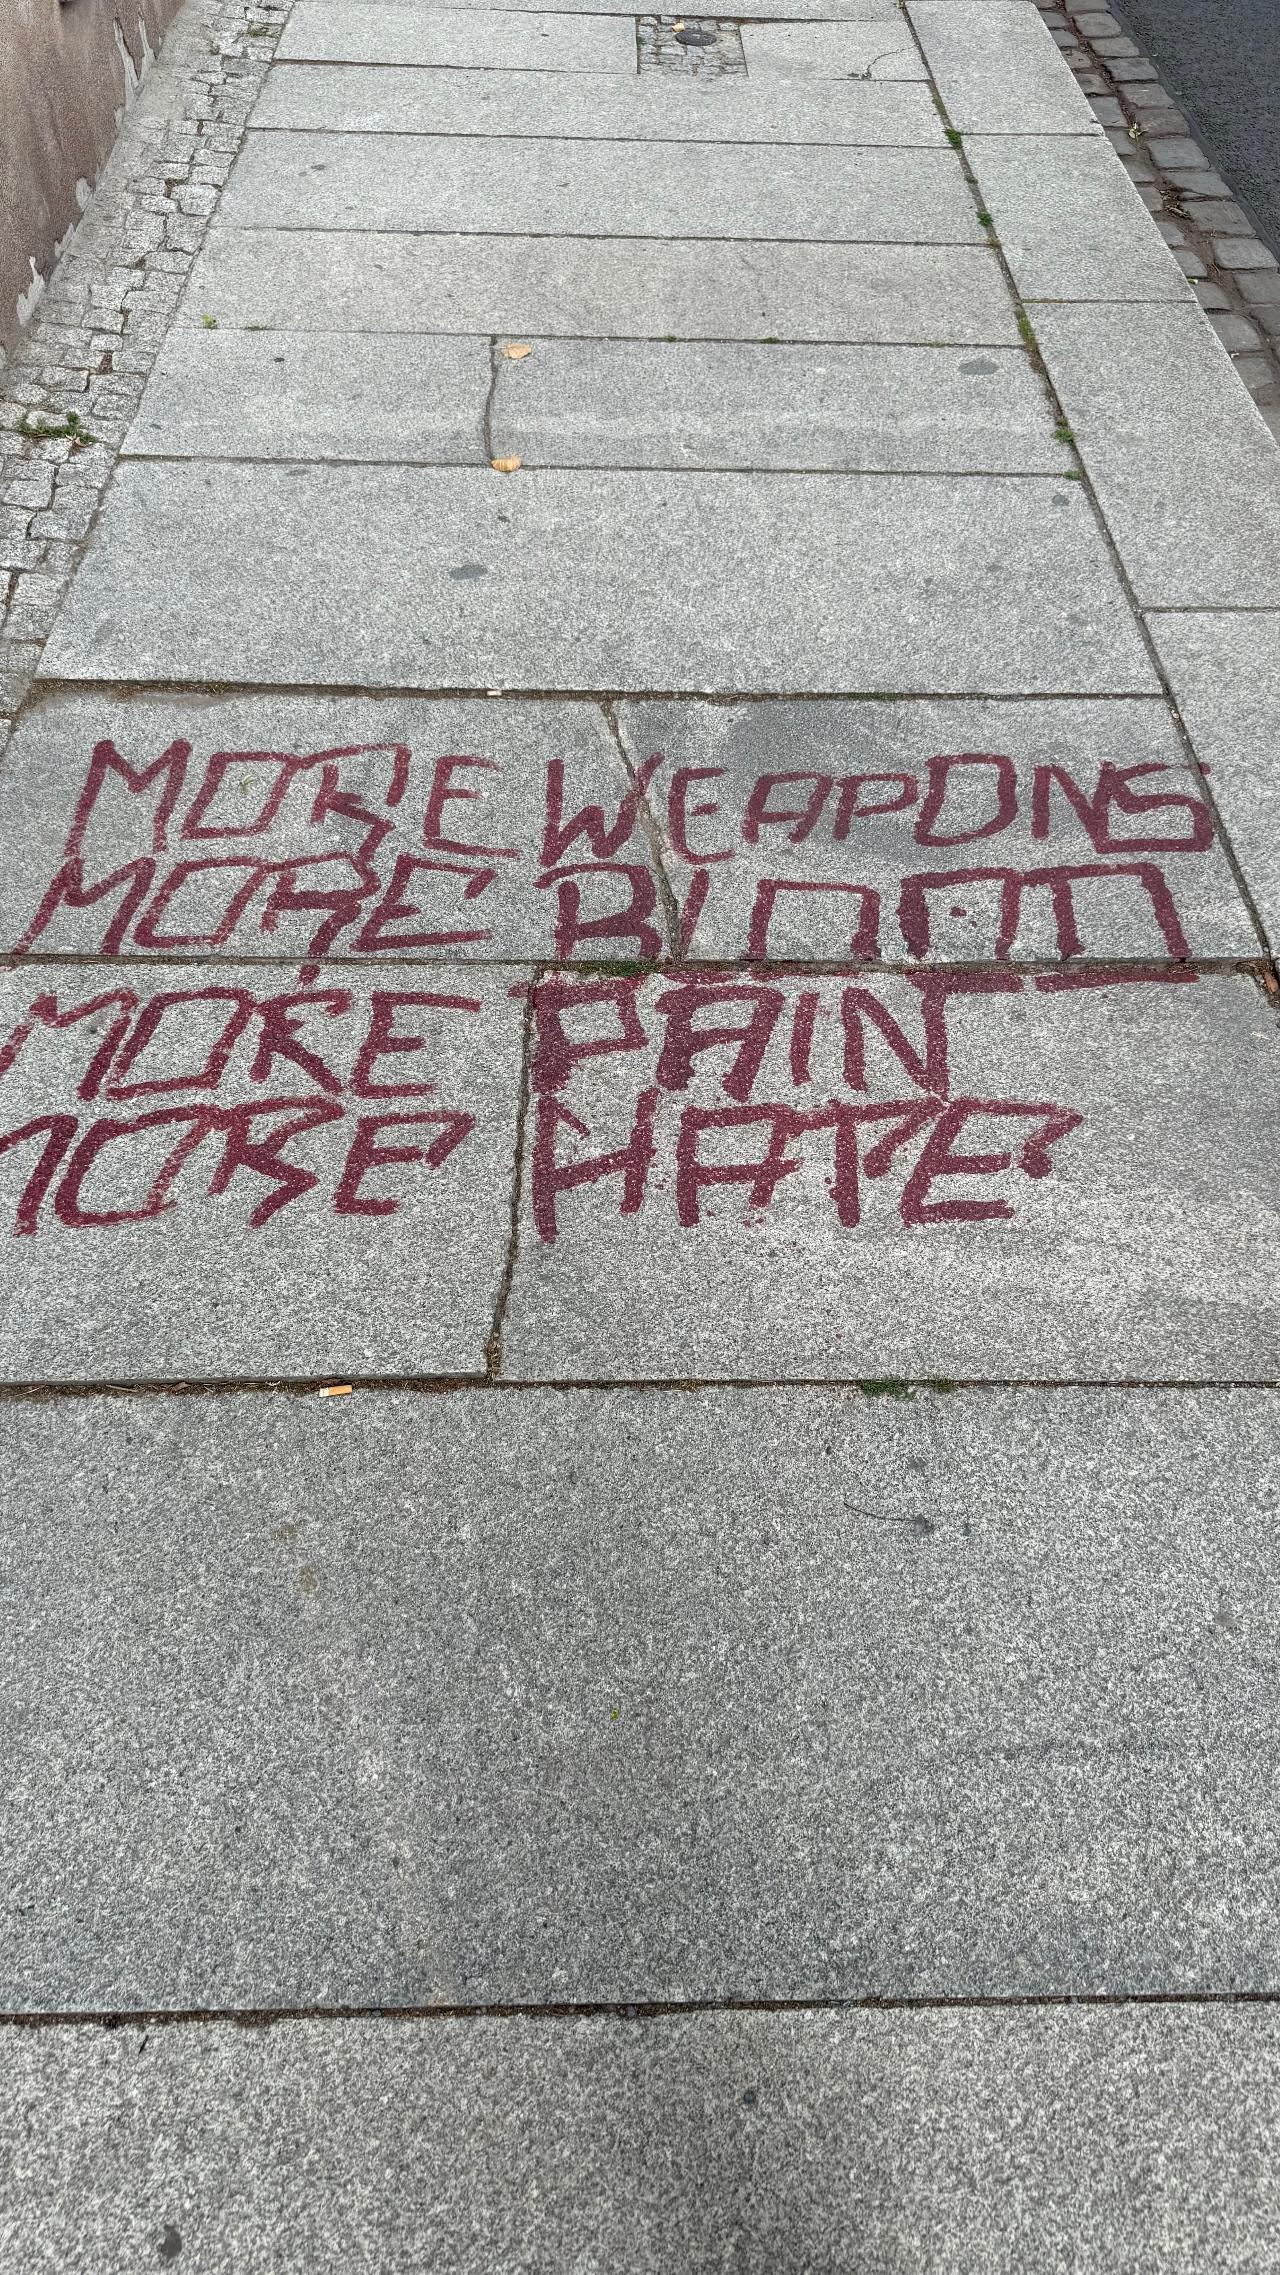 MORE WEAPONS
MORE BLOOD
MORE PAIN
MORE HATE